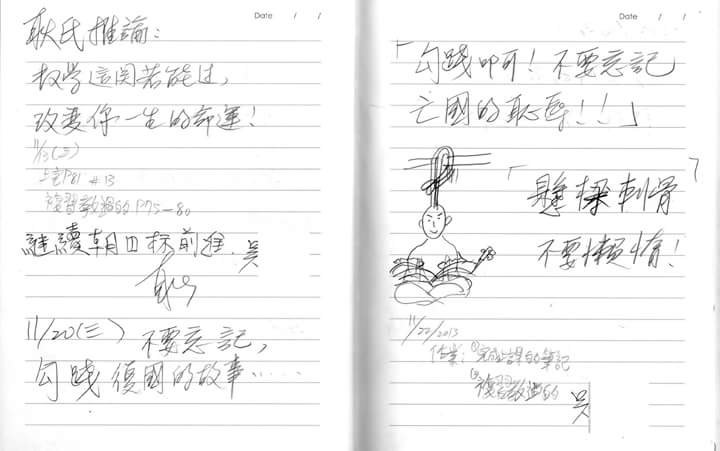 Date / /
耿氏推論:
數学這関若能过,
改變你一生的命運!
11/13(三)
上完P81 #13
複習教過的P75-80
繼續朝目标前進. 吳
耿
11/20(三) 不要忘記,
勾踐復國的故事……
Date / /
「勾踐叩可!不要忘記
亡國的恥辱!!」
「懸樑刺骨」
不要懶惰!
11/22/2013
作業:①完成上課的筆記
②複習教過的
吳